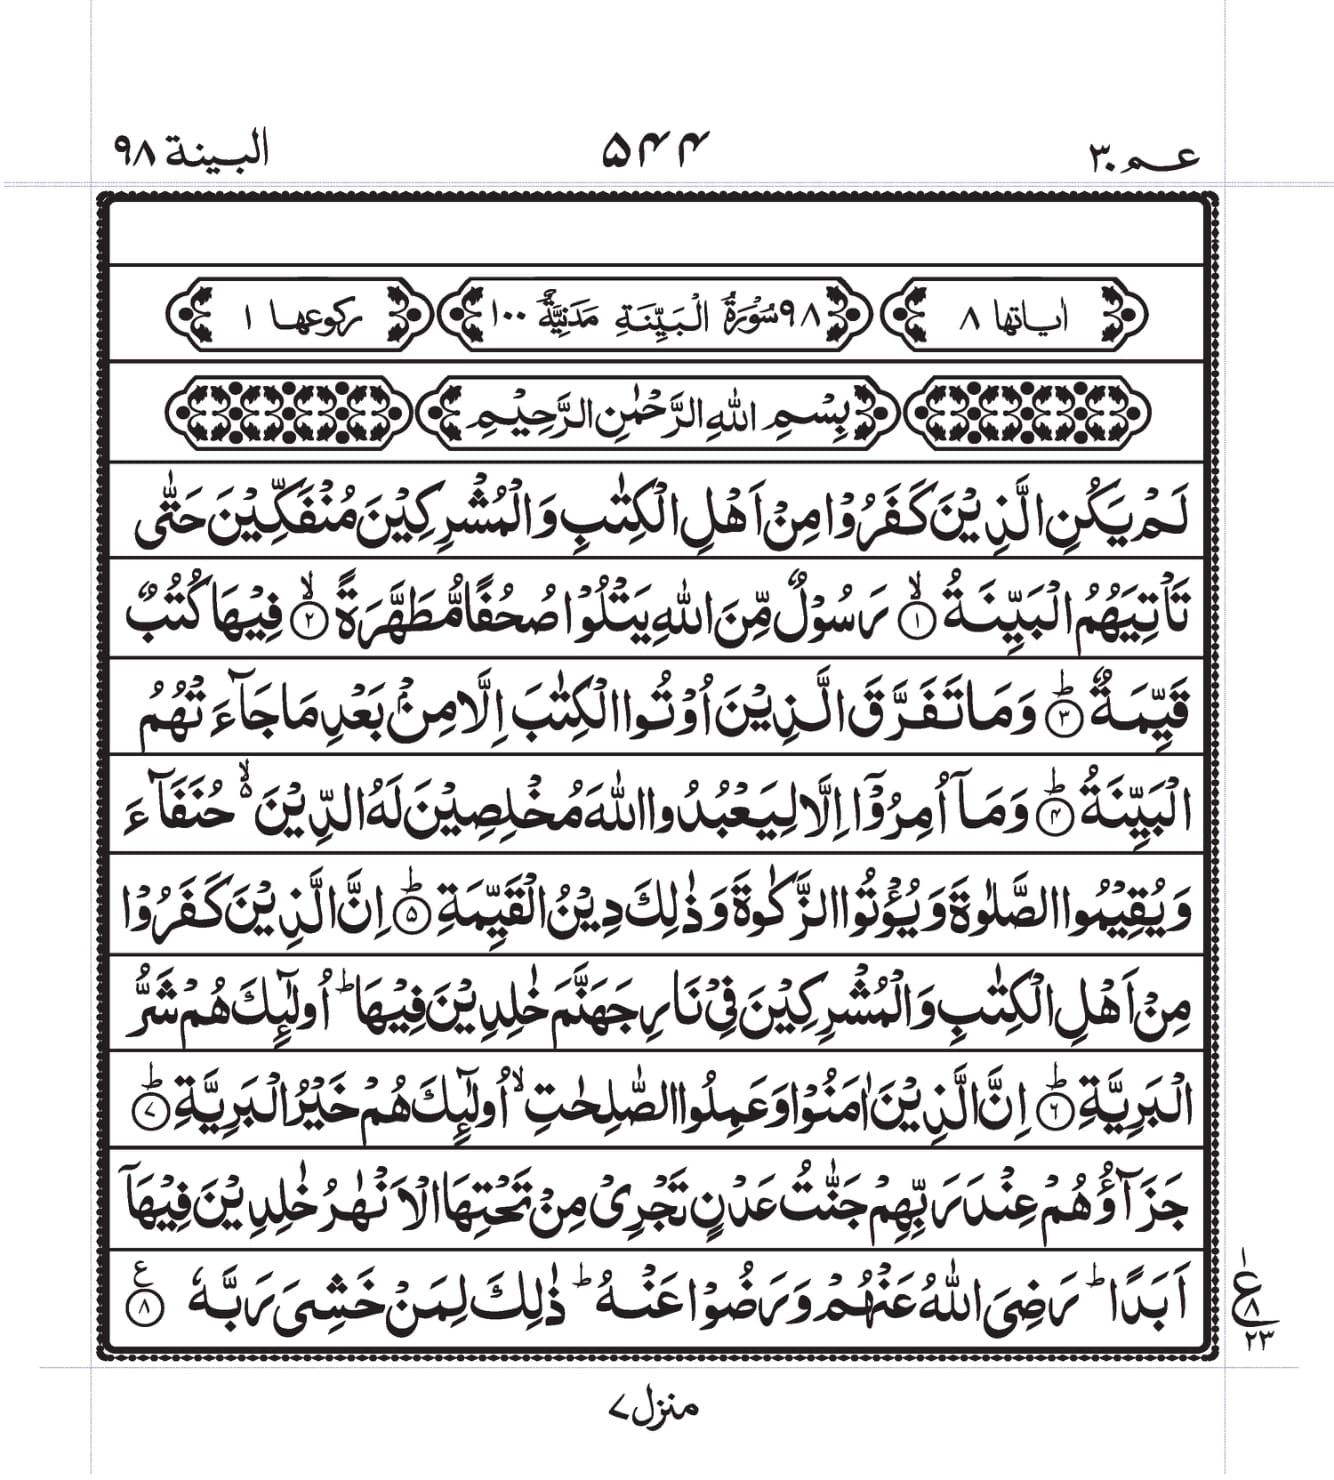 عم ۳۰ ۵۴۴ البينة ۹۸
اٰياتها ۸ ۹۸ سُوْرَةُ الْبَيِّنَةِ مَدَنِيَّةٌ ۱۰۰ ركوعها ۱
بِسْمِ اللّٰهِ الرَّحْمٰنِ الرَّحِيْمِ
لَمْ يَكُنِ الَّذِيْنَ كَفَرُوْا مِنْ اَهْلِ الْكِتٰبِ وَالْمُشْرِكِيْنَ مُنْفَكِّيْنَ حَتّٰى
تَاْتِيَهُمُ الْبَيِّنَةُ ۙ﴿۱﴾ رَسُوْلٌ مِّنَ اللّٰهِ يَتْلُوْا صُحُفًا مُّطَهَّرَةً ۙ﴿۲﴾ فِيْهَا كُتُبٌ
قَيِّمَةٌ ؕ﴿۳﴾ وَمَا تَفَرَّقَ الَّذِيْنَ اُوْتُوا الْكِتٰبَ اِلَّا مِنْۢ بَعْدِ مَا جَآءَتْهُمُ
الْبَيِّنَةُ ؕ﴿۴﴾ وَمَآ اُمِرُوْٓا اِلَّا لِيَعْبُدُوا اللّٰهَ مُخْلِصِيْنَ لَهُ الدِّيْنَ ۙ۬ حُنَفَآءَ
وَيُقِيْمُوا الصَّلٰوةَ وَيُؤْتُوا الزَّكٰوةَ وَذٰلِكَ دِيْنُ الْقَيِّمَةِ ؕ﴿۵﴾ اِنَّ الَّذِيْنَ كَفَرُوْا
مِنْ اَهْلِ الْكِتٰبِ وَالْمُشْرِكِيْنَ فِيْ نَارِ جَهَنَّمَ خٰلِدِيْنَ فِيْهَا ؕ اُولٰٓئِكَ هُمْ شَرُّ
الْبَرِيَّةِ ؕ﴿۶﴾ اِنَّ الَّذِيْنَ اٰمَنُوْا وَعَمِلُوا الصّٰلِحٰتِ ۙ اُولٰٓئِكَ هُمْ خَيْرُ الْبَرِيَّةِ ؕ﴿۷﴾
جَزَآؤُهُمْ عِنْدَ رَبِّهِمْ جَنّٰتُ عَدْنٍ تَجْرِيْ مِنْ تَحْتِهَا الْاَنْهٰرُ خٰلِدِيْنَ فِيْهَآ
اَبَدًا ؕ رَضِيَ اللّٰهُ عَنْهُمْ وَرَضُوْا عَنْهُ ؕ ذٰلِكَ لِمَنْ خَشِيَ رَبَّهٗ ﴿۸﴾ ع
۱
ع ۸
۲۳
منزل ۷